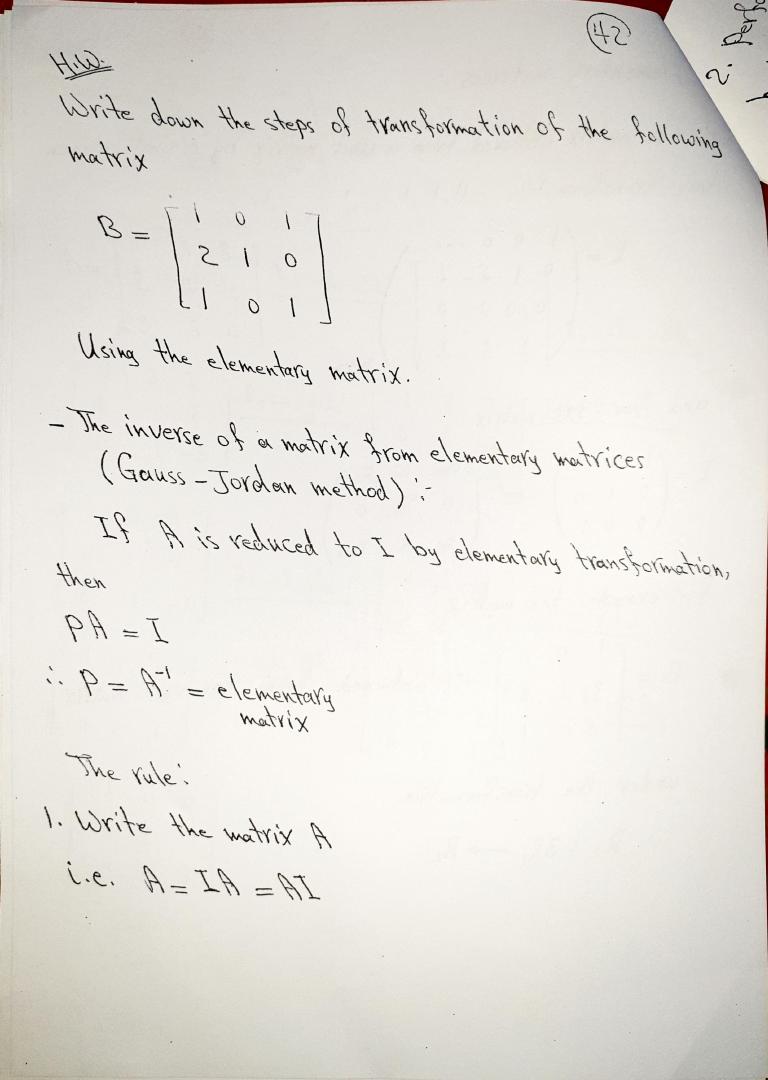 42
2. Perfo
H.W.
Write down the steps of transformation of the following
matrix
B = [ 1 0 1
2 1 0
1 0 1 ]
Using the elementary matrix.
- The inverse of a matrix from elementary matrices
(Gauss - Jordan method) :-
If A is reduced to I by elementary transformation,
then
PA = I
∴ P = A⁻¹ = elementary
matrix
The rule:
1. Write the matrix A
i.e. A = IA = AI